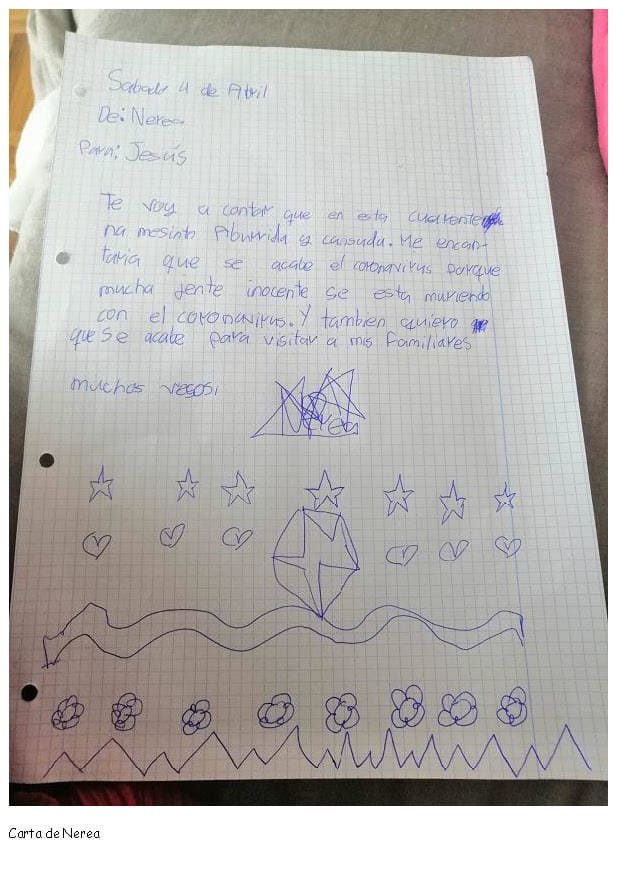 Sabado 4 de Abril
De: Nerea
Para: Jesús
Te voy a contar que en esta cuarente
na mesinto Aburrida y cansada. Me encan-
taria que se acabe el coronavirus porque
mucha jente inocente se esta muriendo
con el coronavirus. Y tambien quiero
que se acabe para visitar a mis familiares
muchos vesos,
Nerea
Carta de Nerea